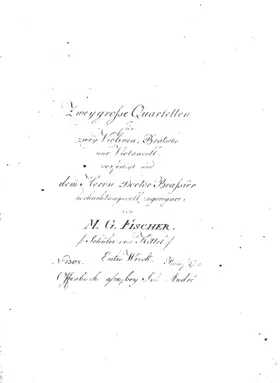 Zwey grosse Quartetten
für
zwey Violinen, Bratsche
und Violoncell,
verfertigt und
dem Herrn Doctor Brassier
hochachtungsvoll zugeeignet,
von
M. G. FISCHER.
Schüler von Kittel
Erstes Werk.
Offenbach bey Joh. André